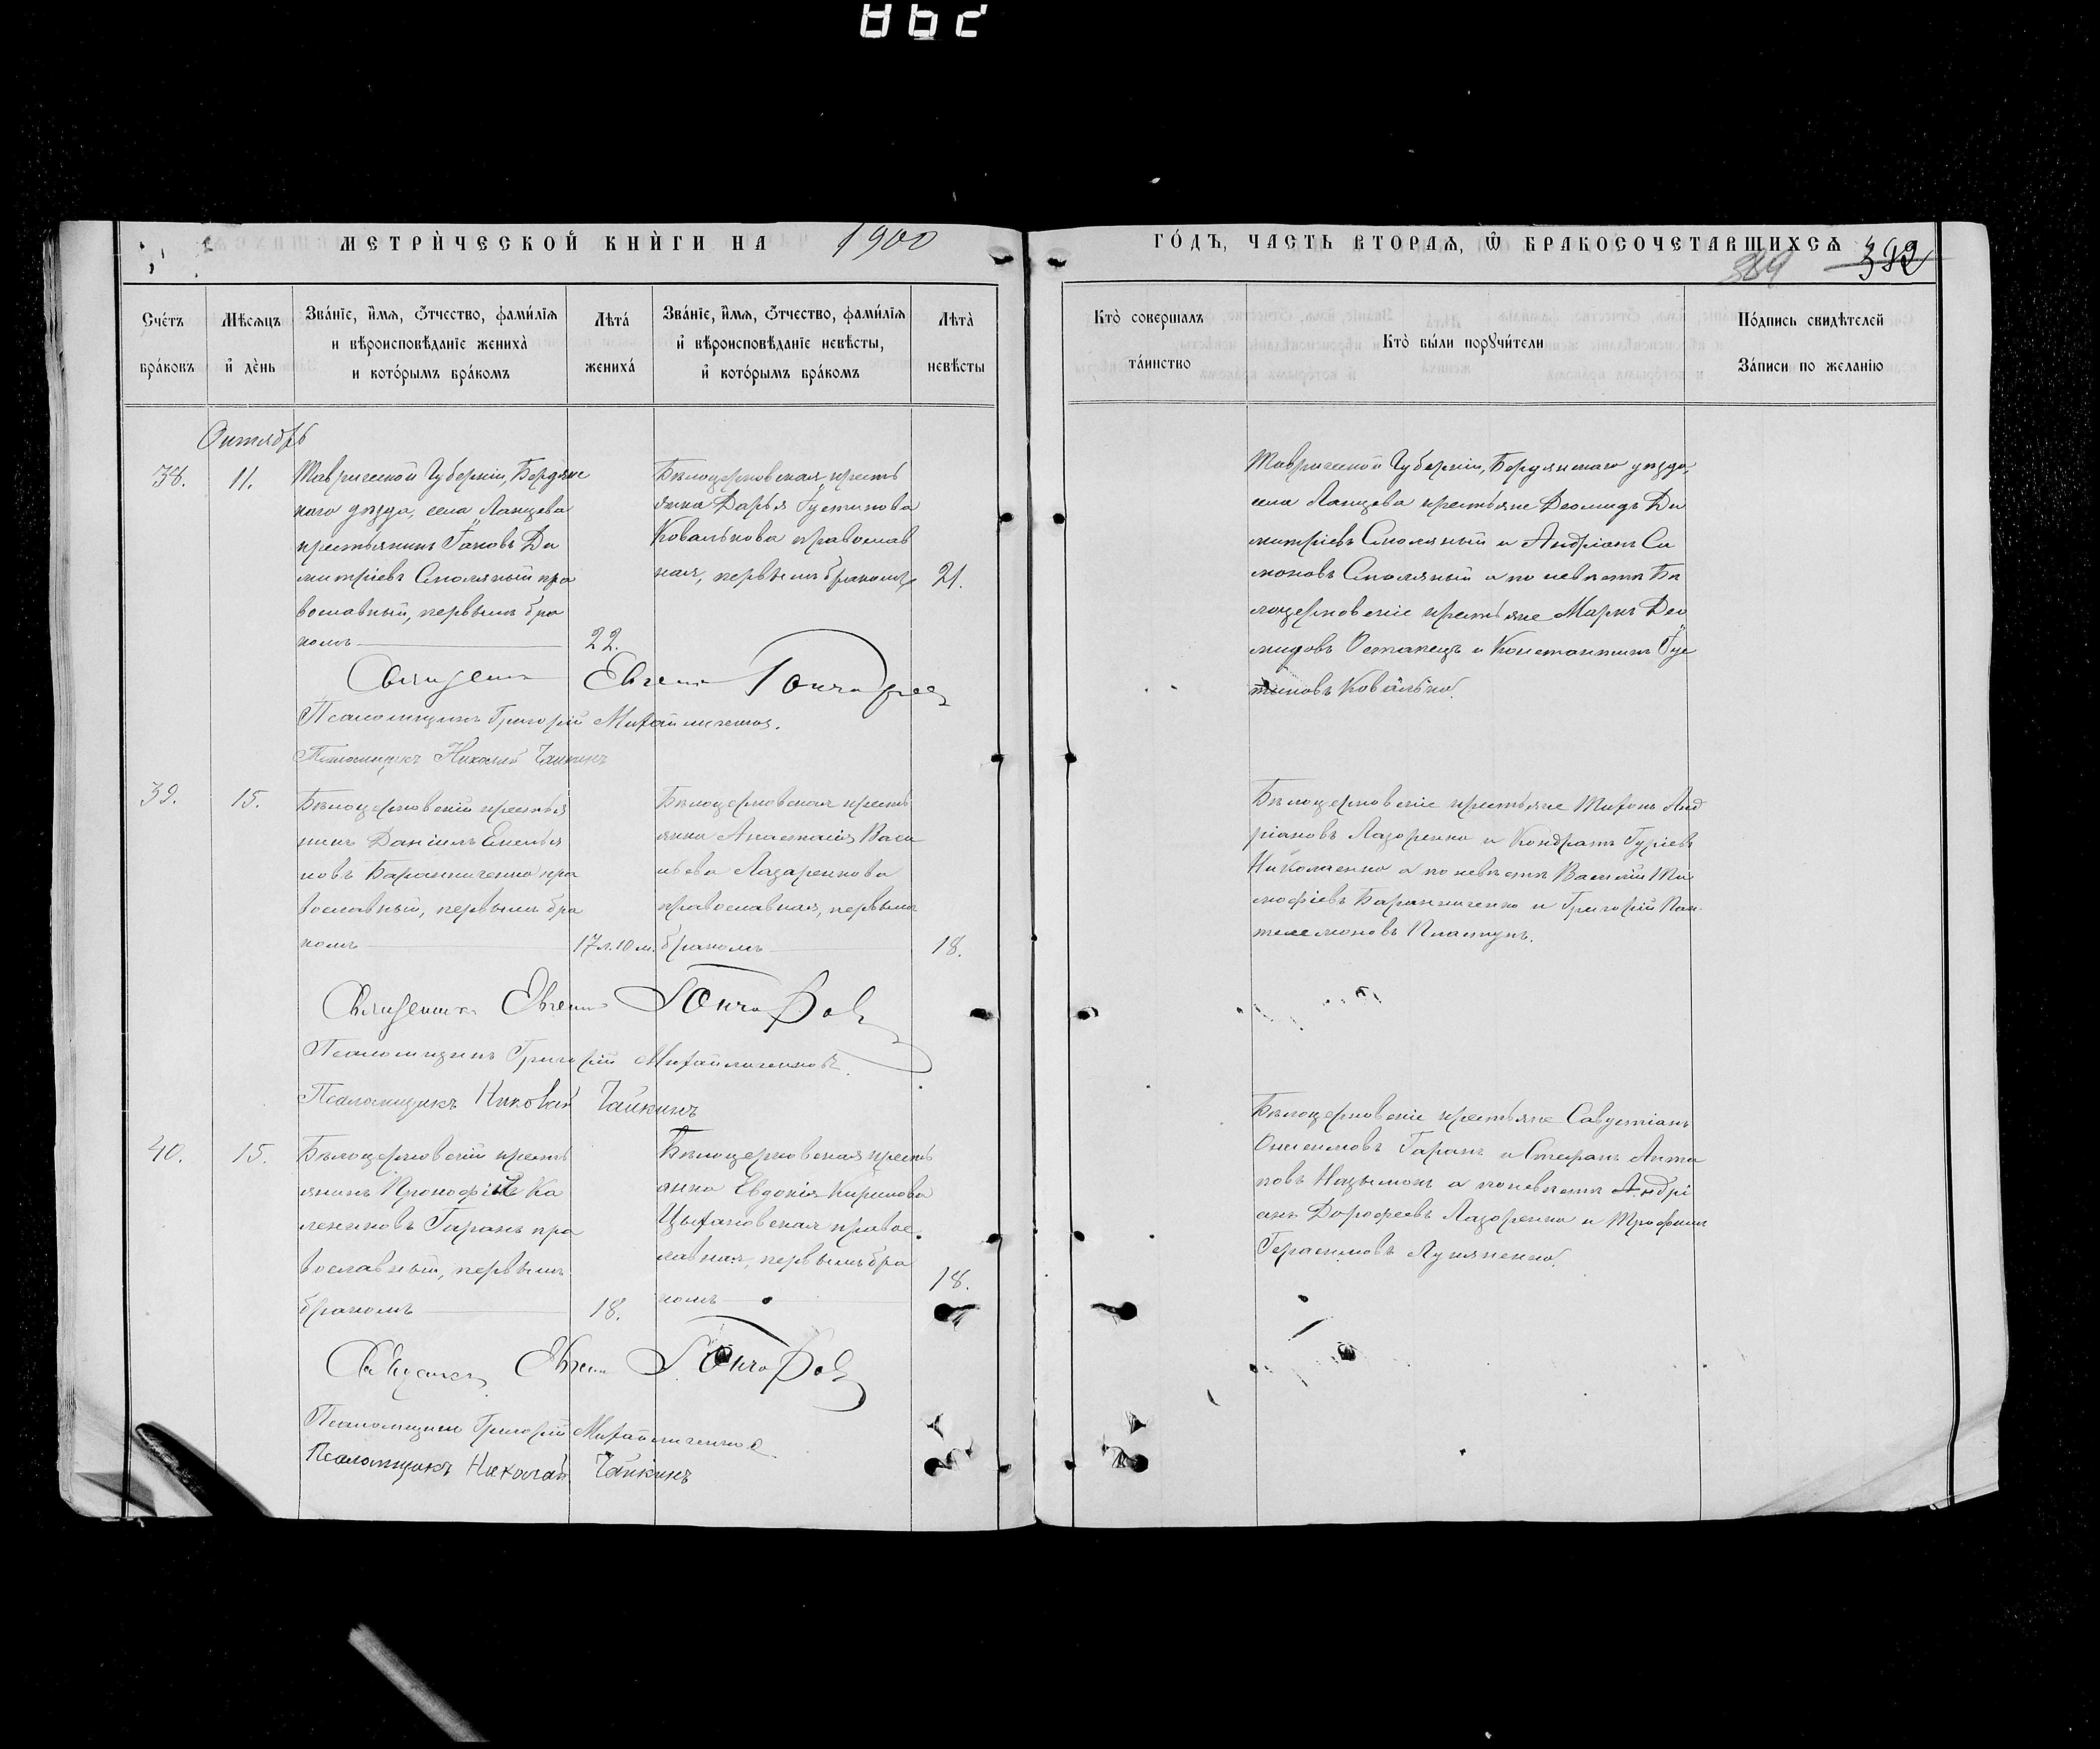 862
МЕТРИЧЕСКОЙ КНИГИ НА 1900
ГОДЪ, ЧАСТЬ ВТОРАЯ, Ѿ БРАКОСОЧЕТАВШИХСЯ
384 392
Счетъ браковъ
Мѣсяцъ и день
Званіе, имя, ѿтчество, фамилія
и вѣроисповѣданіе жениха
и которымъ бракомъ
Лѣта жениха
Званіе, имя, ѿтчество, фамилія
и вѣроисповѣданіе невѣсты,
и которымъ бракомъ
Лѣта невѣсты
Кто совершалъ
таинство
Кто были поручители
Подпись свидѣтелей
Записи по желанію
Октябрь
38.
11.
Таврической Губерніи, Бердянс
каго уѣзда, села Ланцева
крестьянинъ Іаковъ Ди
митріевъ Смоляный пра
вославный, первымъ бра
комъ
22.
Бѣлоцерковская кресть
янка Дарья Густинова
Ковалькова православ
ная, первымъ бракомъ
21.
Таврической Губерніи, Бердянскаго уѣзда,
села Ланцева крестьяне Деомидъ Ди
митріевъ Смоляный и Андріанъ Си
моновъ Смоляный а по невѣстѣ Бѣ
лоцерковскіе крестьяне Маркъ Део
мидовъ Остапецъ и Константинъ Гус
тиновъ Ковалько.
Священникъ Евгеній Гончаровъ
Псаломщикъ Григорій Михайличенко.
Псаломщикъ Николай Чайкинъ
39.
15.
Бѣлоцерковскій крестья
нинъ Даніилъ Емелья
новъ Баранниченко пра
вославный, первымъ бра
комъ
17 л. 10 м.
Бѣлоцерковская кресть
янка Анастасія Васи
льева Лазаренкова
православная, первымъ
бракомъ
18.
Бѣлоцерковскіе крестьяне Тихонъ Анд
ріановъ Лазоренко и Кондратъ Гуріевъ
Николаенко а по невѣстѣ Василій Ти
мофіевъ Баранниченко и Григорій Пан-
телемоновъ Пластунъ.
Священникъ Евгеній Гончаровъ
Псаломщикъ Григорій Михайличенко.
Псаломщикъ Николай Чайкинъ
40.
15.
Бѣлоцерковскій кресть
янинъ Прокофій Ка
ленниковъ Гаранъ пра
вославный, первымъ
бракомъ
18.
Бѣлоцерковская кресть
янка Евдокія Кирилова
Цыхановская правос
лавная, первымъ бра
комъ
18.
Бѣлоцерковскіе крестьяне Савустіанъ
Онисимовъ Гаранъ и Стефанъ Анто
новъ а по невѣстѣ Андрі
анъ Дорофеевъ Лазоренко и Трофимъ
Герасимовъ Лукяненко.
Священникъ Евгеній Гончаровъ
Псаломщикъ Григорій Михайличенко
Псаломщикъ Николай Чайкинъ